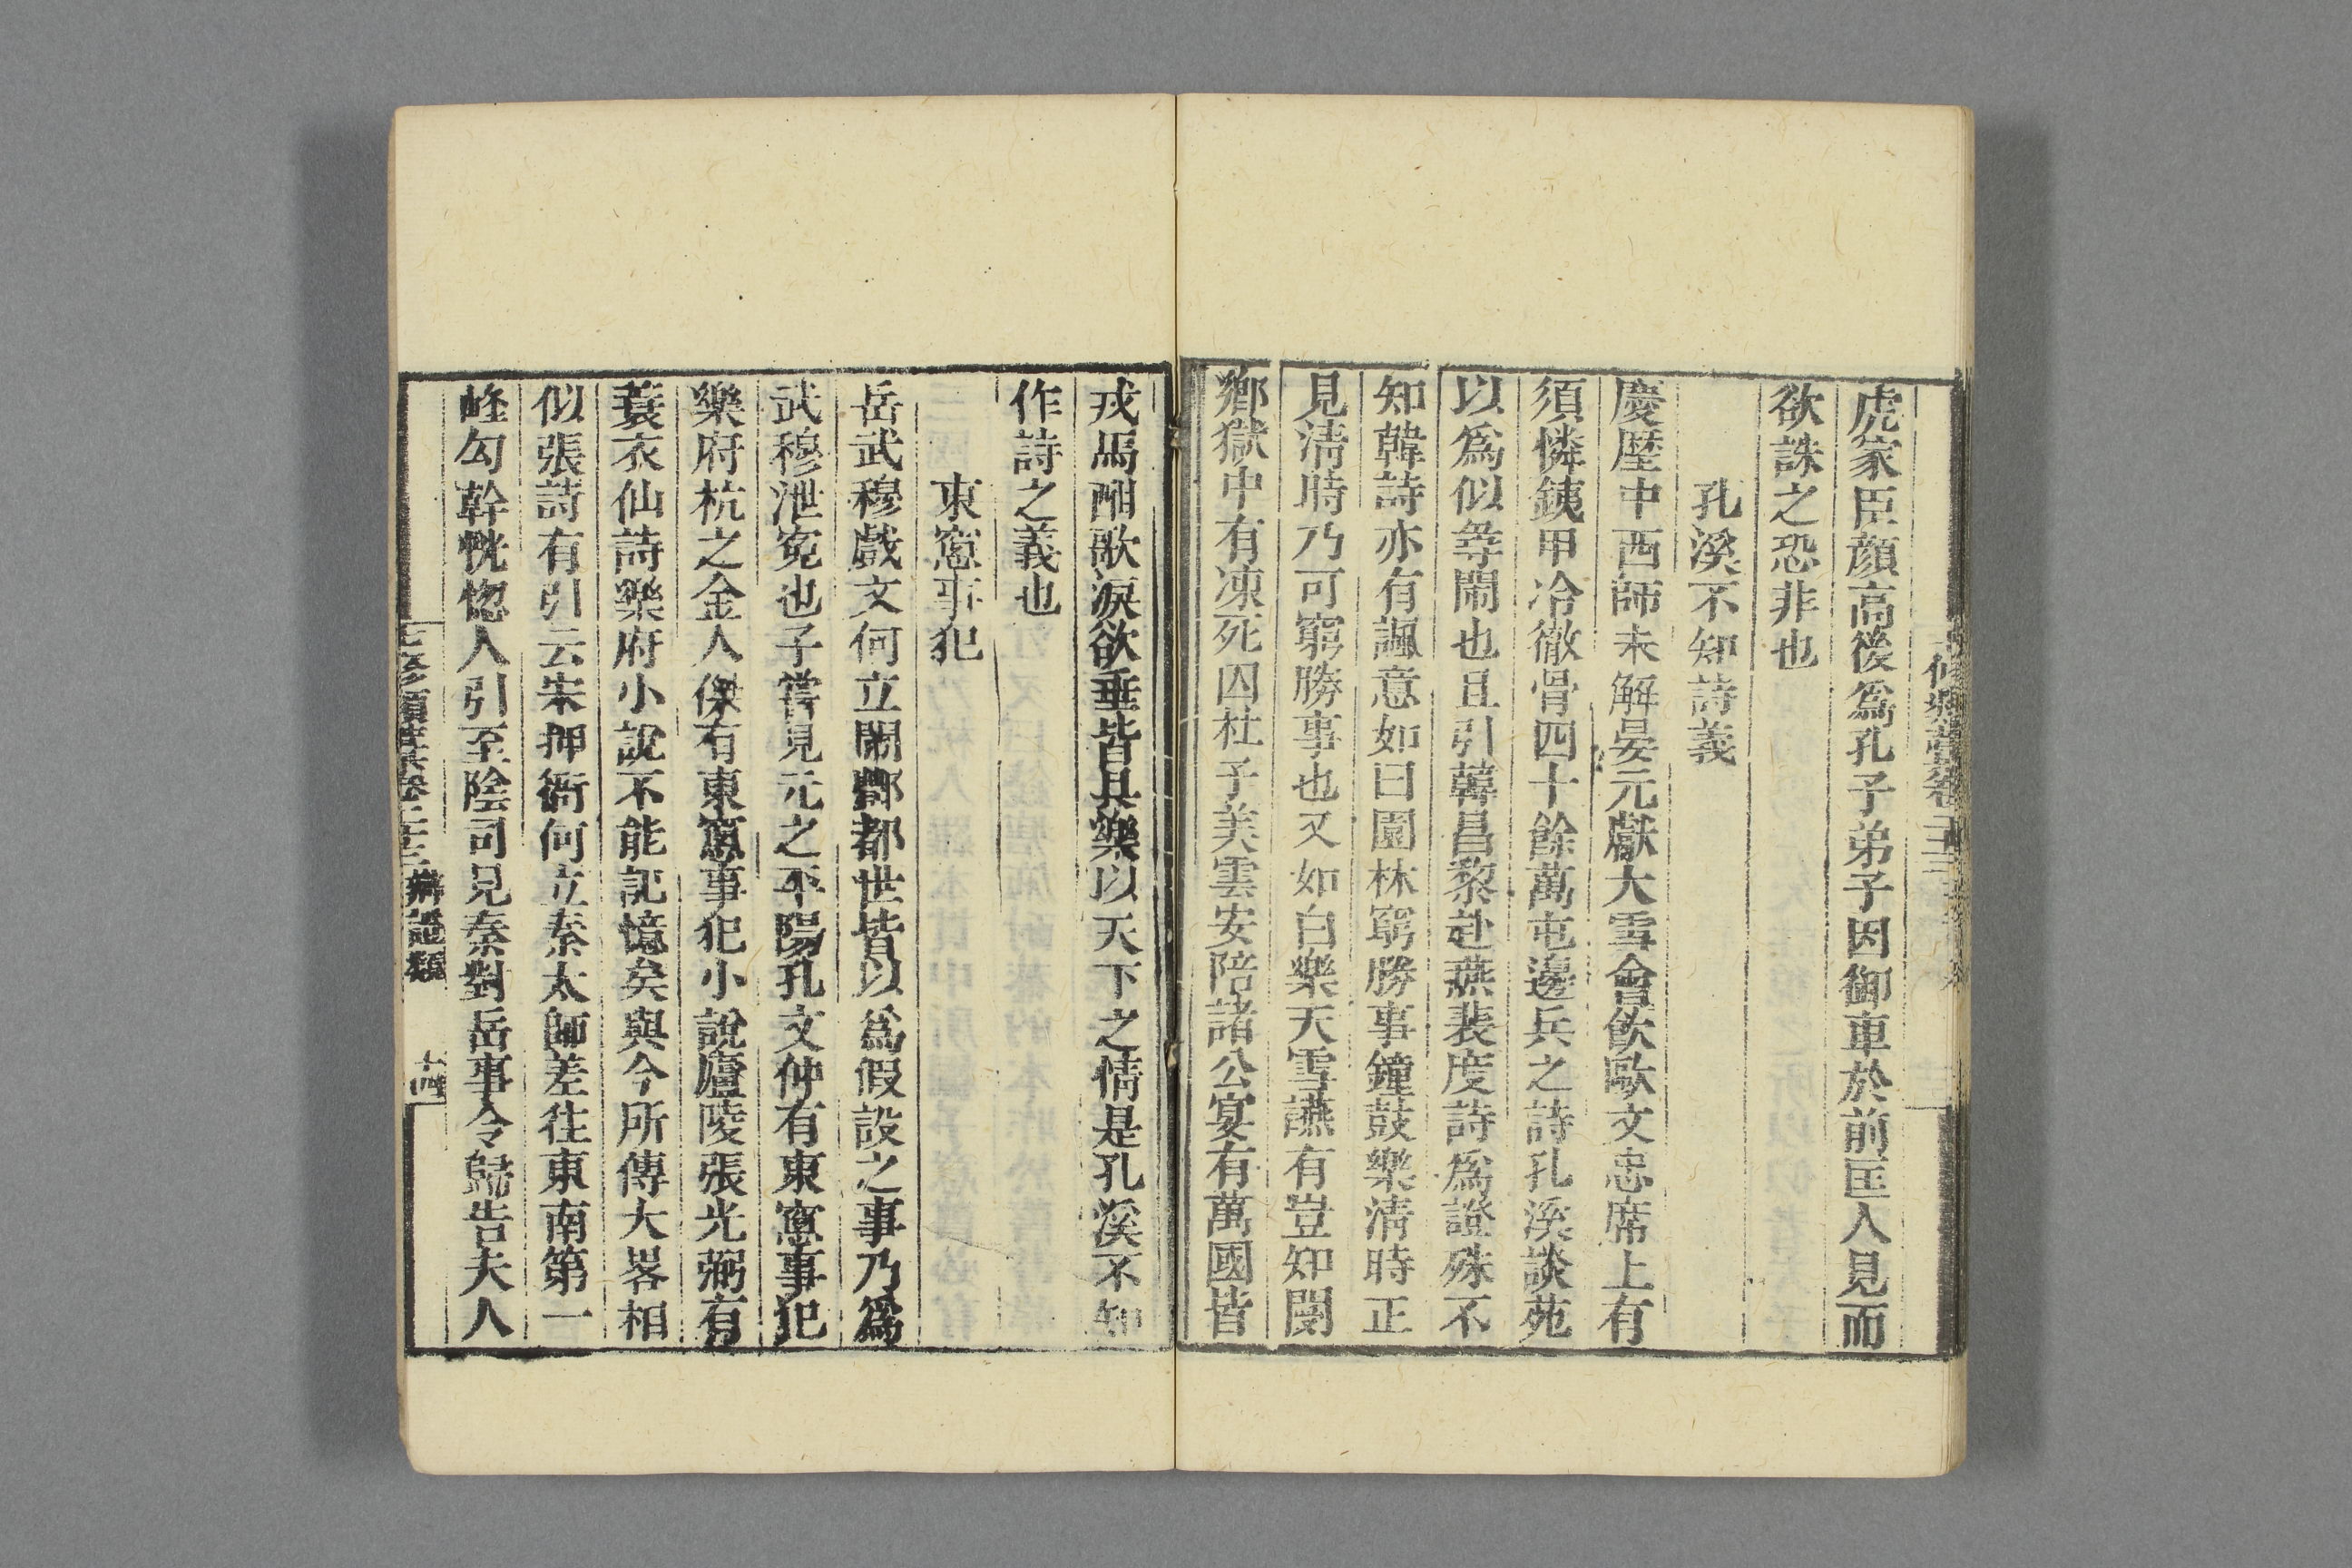 虎家臣顔高後爲孔子弟子因御車於前匡人見而
欲誅之恐非也
孔溪不知詩義
慶歴中西師未解晏元獻大雪會飲歐文忠席上有
須憐鐵甲冷徹骨四十餘萬屯邊兵之詩孔溪談苑
以爲似尋鬧也且引韓昌黎赴燕裴度詩爲證殊不
知韓詩亦有諷意如曰園林窮勝事鐘鼓樂清時正
見清時乃可窮勝事也又如白樂天雪讌有豈知閿
鄉獄中有凍死囚杜子美雲安陪諸公宴有萬國皆
戎馬酣歌淚欲垂皆具樂以天下之情是孔溪不知
作詩之義也
東窻事犯
岳武穆戲文何立閙酆都世皆以爲假設之事乃爲
武穆泄寃也予嘗見元之平陽孔文仲有東窻事犯
樂府杭之金人傑有東窻事犯小說廬陵張光弼有
蓑衣仙詩樂府小說不能記憶矣與今所傳大畧相
似張詩有引云宋押衙何立秦太師差往東南第一
峰勾幹恍惚人引至陰司見秦對岳事令歸告夫人
七修類藁卷二十三 辨證類 十四